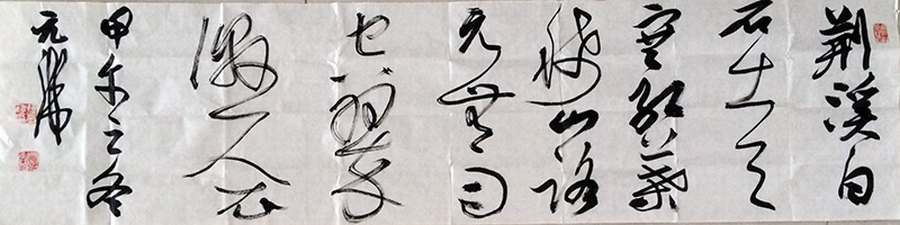 荆溪白
石出天
寒红葉
稀山路
元無雨
空翠
濕人衣
甲午之冬
元